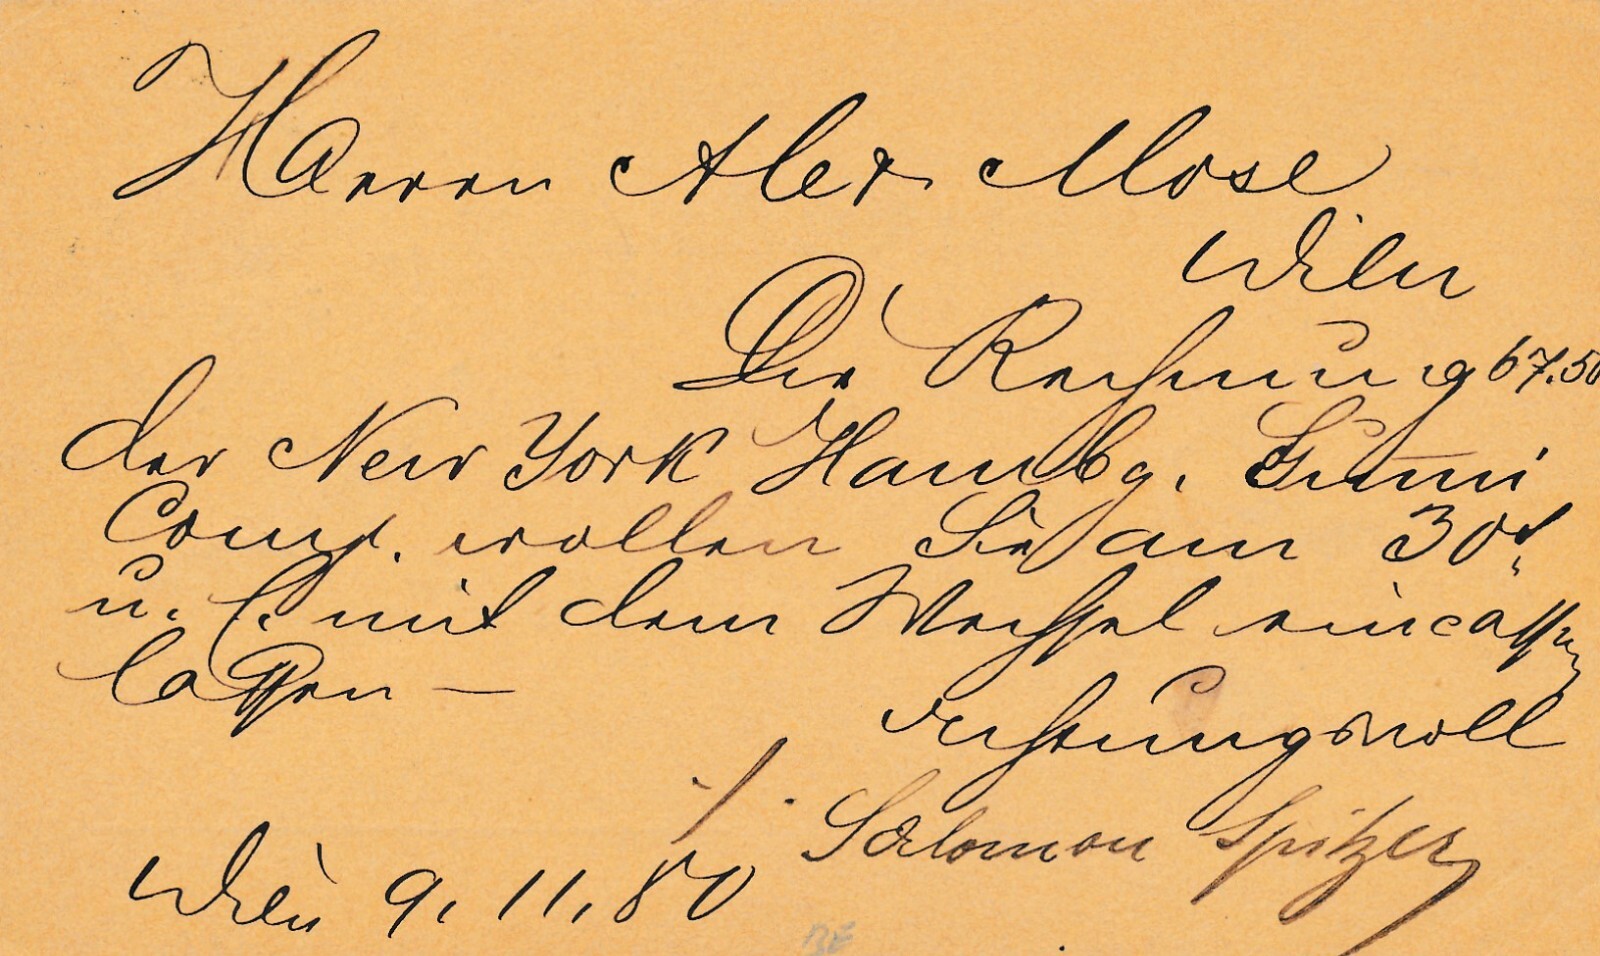 Herrn Alex Mose
Wien
Die Rechnung 67.50
der New York Hambg. Gummi
Comp. wollen Sie am 30t
mit dem Wechsel eincassiren
lassen —
Achtungsvoll
Salomon Spitzer
Wien 9. 11. 80